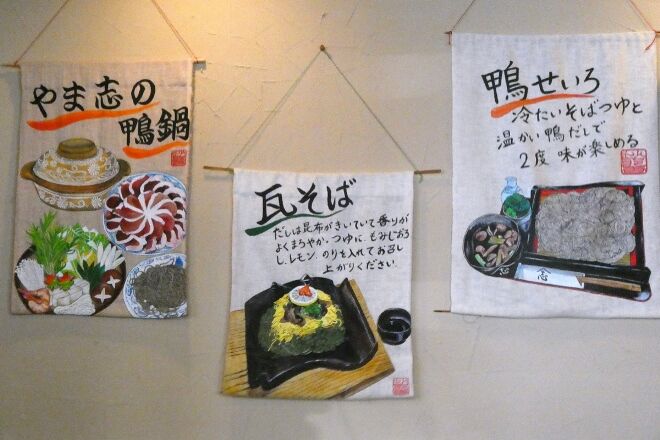 やま志の
鴨鍋
瓦そば
だしは昆布がきいていて香りが
よくまろやか。つゆに、もみじおろ
し、レモン、のりを入れてお召し
上がりください。
鴨せいろ
冷たいそばつゆと
温かい鴨だしで
2度味が楽しめる